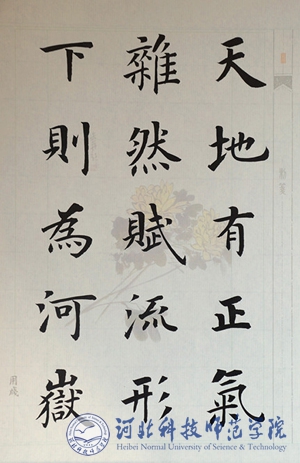 天地有正氣
雜然賦流形
下則為河嶽
河北科技师范学院
Heibei Normal University of Science & Technology